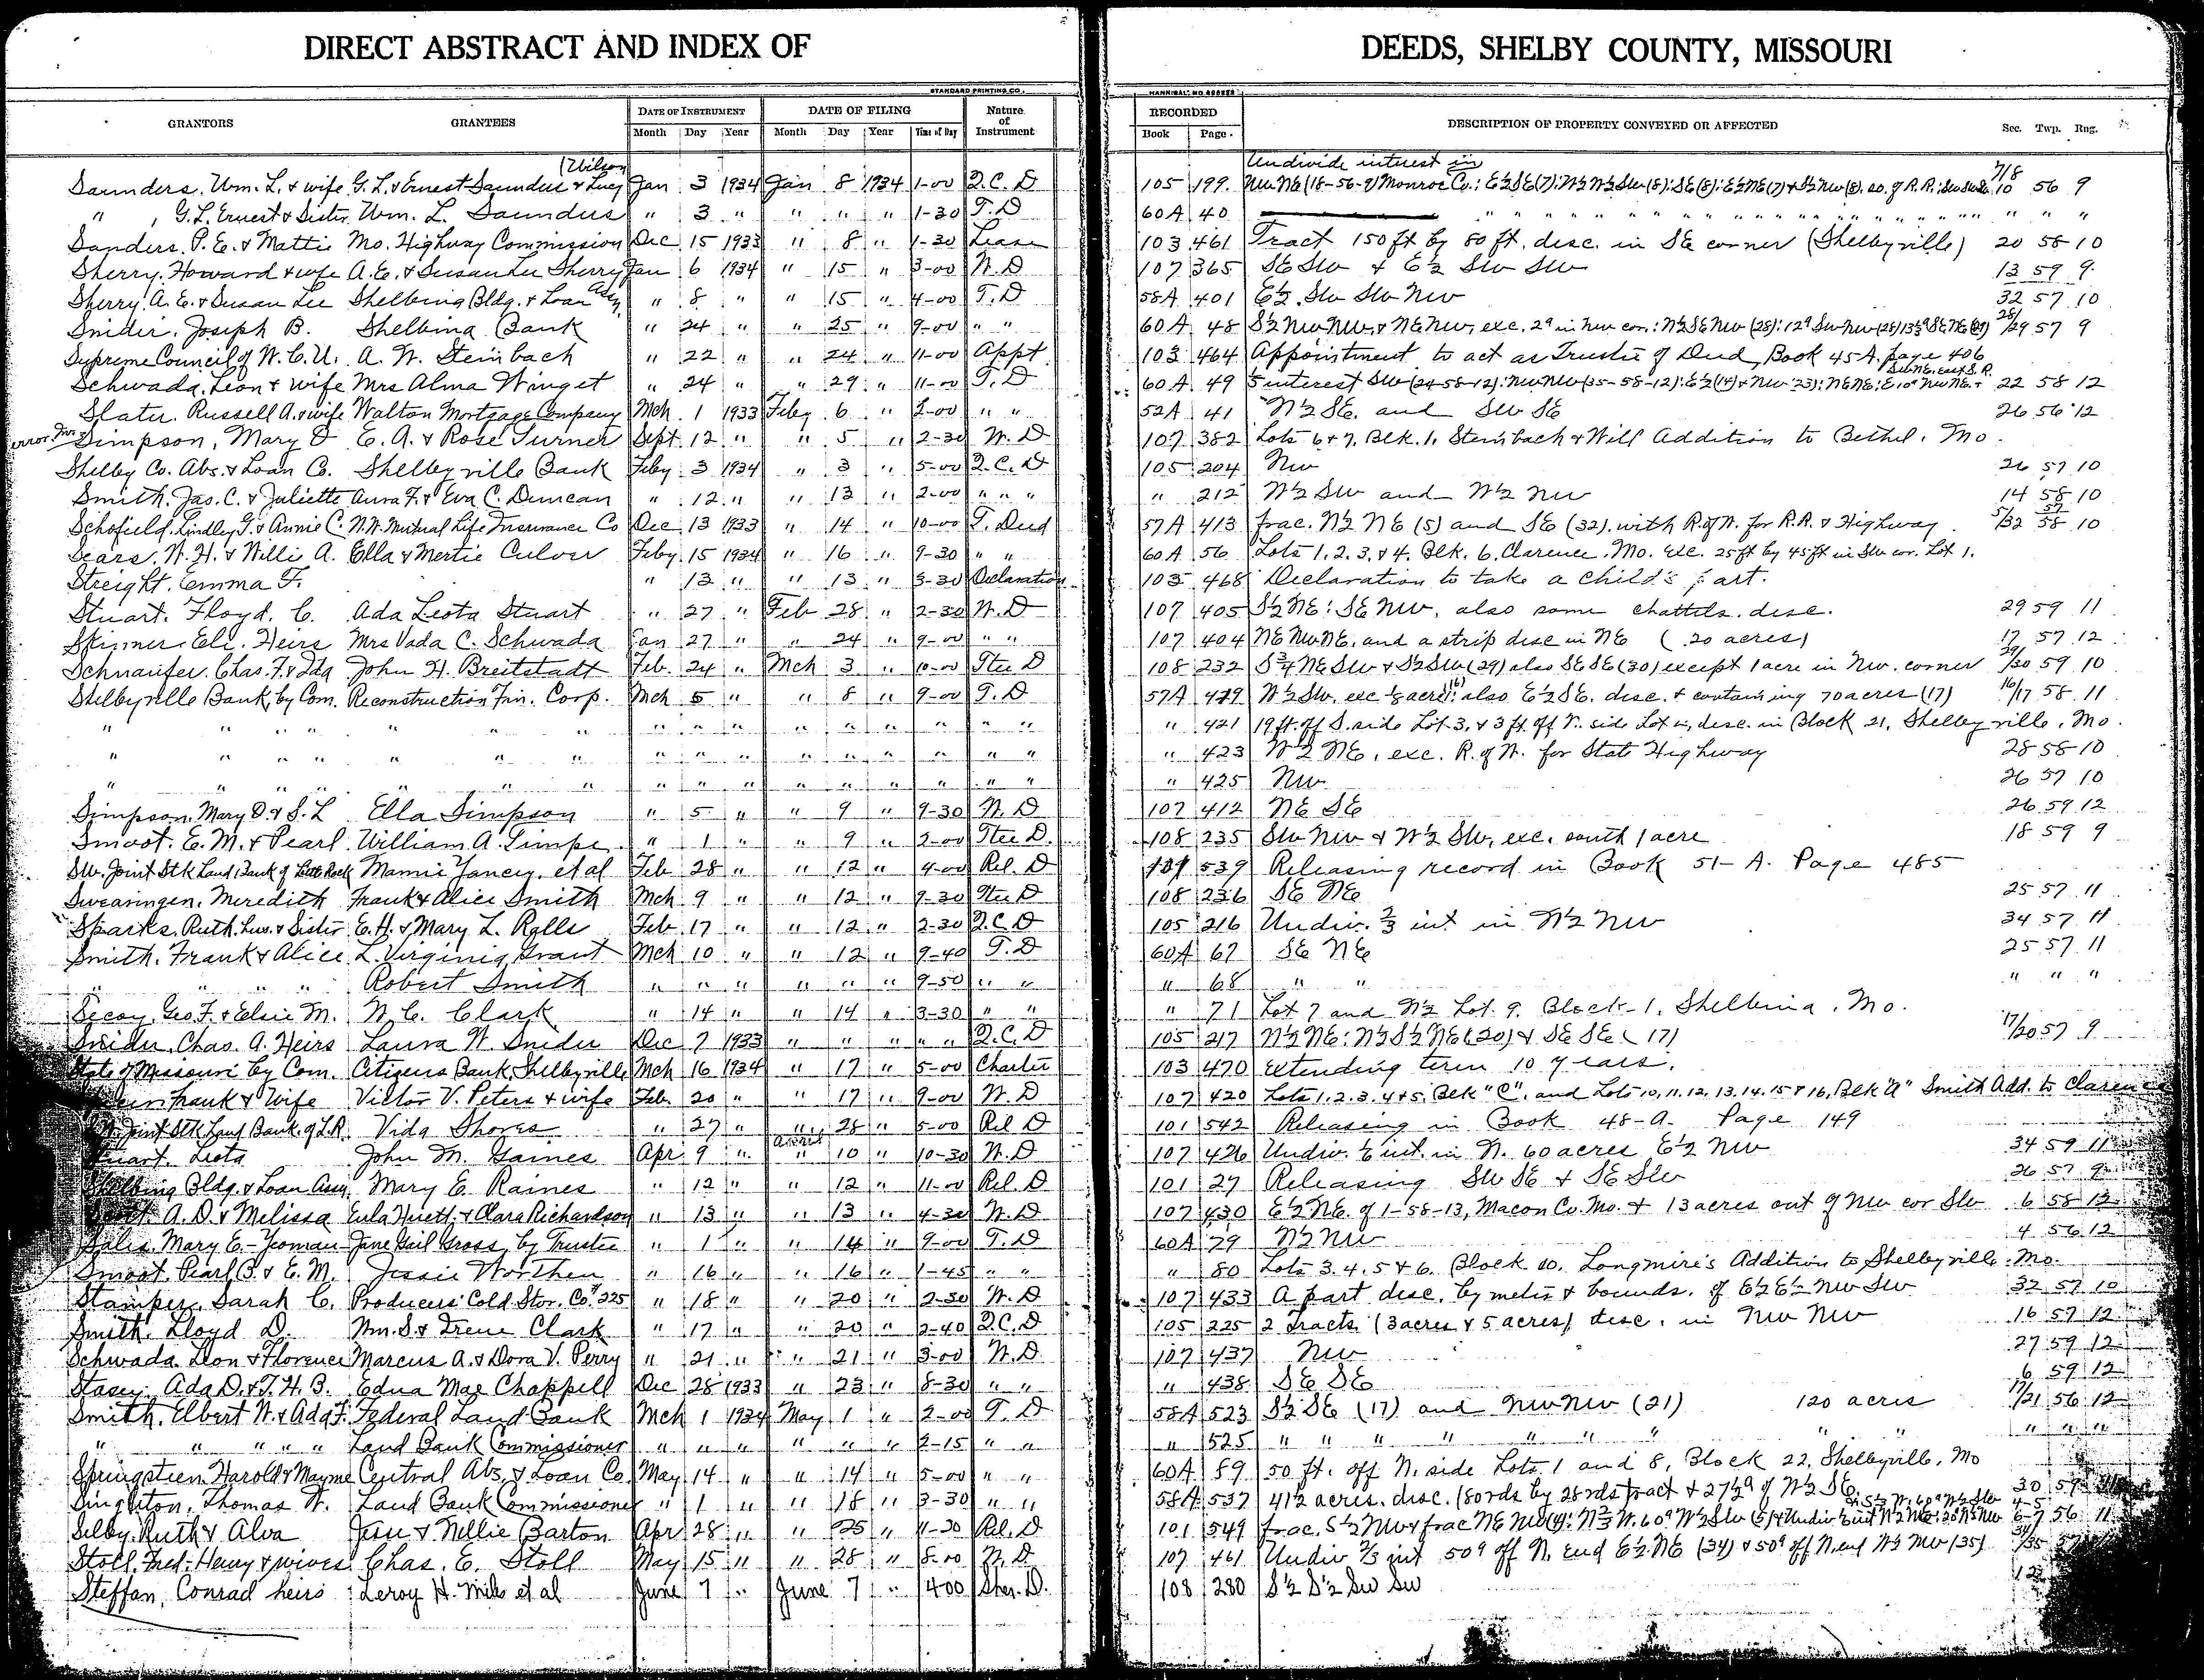 DIRECT ABSTRACT AND INDEX OF DEEDS, SHELBY COUNTY, MISSOURI
STANDARD PRINTING CO. HANNIBAL, MO
GRANTORS GRANTEES DATE OF INSTRUMENT DATE OF FILING Nature of Instrument RECORDED DESCRIPTION OF PROPERTY CONVEYED OR AFFECTED Sec. Twp. Rng.
Month Day Year Month Day Year Time of Day Book Page
(Wilson Undivide interest in 7/8
Saunders, Wm. L. & wife G. L. & Ernest Saunders & Lucy Jan 3 1934 Jan 8 1934 1-00 Q.C.D 105 199 NW NE (18-56-9) Monroe Co.: E½ SE (7): N½ N½ SW (8): SE (8): E½ NE (7) & S½ NW (8), so. of R.R.: 10 56 9
" , G.L. Ernest & Sister Wm. L. Saunders " 3 " " " " 1-30 T.D 60A 40 " " " " " " " "
Sanders, P. E. & Mattie Mo. Highway Commission Dec 15 1933 " 8 " 1-30 Lease 103 461 Tract 150 ft by 80 ft. desc. in SE corner (Shelbyville) 20 58 10
Sherry, Howard & wife A. E. & Susan Lee Sherry Jan 6 1934 " 15 " 3-00 W.D 107 365 SE SW & E½ SW SW 13 59 9
Sherry, A. E. & Susan Lee Shelbina Bldg. & Loan Assn " 8 " " 15 " 4-00 T.D 58A 401 E½ SW SW NW 32 57 10
Snider, Joseph B. Shelbina Bank " 24 " " 25 " 9-00 " " 60A 48 S½ NW NW, & NE NW, exc. 2a in NW cor.: N½ SE NW (28): 12a SW NW (28) 13½a SE NE (29) 28/29 57 9
Supreme Council of W.C.U. A. W. Steinbach " 22 " " 24 " 11-00 Appt 103 464 Appointment to act as Trustee of Deed, Book 45-A, page 406
Schwada, Leon & wife Mrs Alma Winget " 24 " " 29 " 11-00 T.D 60A 49 interest SW (24-58-12): NW NW (35-58-12): E½ (14) & NW 23): NE NE: E. 10a NW NE & 22 58 12
Slater, Russell A. & wife Walton Mortgage Company Mch 1 1933 Feby 6 " 2-00 " " 52A 41 N½ SE and SW SE 26 56 12
error Simpson, Mary D E. A. & Rose Turner Sept. 12 " " 5 " 2-30 W.D 107 382 Lots 6 & 7, Blk. 1, Steinbach & Will Addition to Bethel, Mo.
Shelby Co. Abs. & Loan Co. Shelbyville Bank Feby 3 1934 " 3 " 5-00 Q.C.D 105 204 NW 26 57 10
Smith, Jas. C. & Juliette Aura F. & Eva C. Duncan " 12 " " 13 " 2-00 " " " " 212 W½ SW and W½ NW 14 58 10
Schofield, Lindley G. & Annie C. N.W. Mutual Life Insurance Co Dec 13 1933 " 14 " 10-00 T. Deed 57A 413 frac. N½ NE (5) and SE (32), with R. of W. for R.R. & Highway 5/32 57 58 10
Sears, W. H. & Willie A. Ella & Mertie Culver Feby 15 1934 " 16 " 9-30 " " 60A 56 Lots 1, 2, 3, & 4, Blk. 6, Clarence, Mo. exc. 25 ft by 45 ft in SW cor. Lot 1.
Streight, Emma F. " 13 " " 13 " 3-30 Declaration 103 468 Declaration to take a child's part.
Stuart, Floyd C. Ada Leota Stuart " 27 " Feb 28 " 2-30 W.D 107 405 S½ NE: SE NW, also some chattels desc. 29 59 11
Skinner, Eli, Heirs Mrs Vada C. Schwada Jan 27 " " 24 " 9-00 " " 107 404 NE NW NE, and a strip desc in NE (20 acres) 17 57 12
Schnaufer, Chas. F. & Ida John H. Breitstadt Feb. 24 " Mch 3 " 10-00 Stee D 108 232 S¾ NE SW & S½ SW (29) also SE SE (30) except 1 acre in NW. corner 29/30 59 10
Shelbyville Bank, by Com. Reconstruction Fin. Corp. Mch 5 " " 8 " 9-00 T.D 57A 419 W½ SW, exc ½ acre (16): also E½ SE, desc. & containing 70 acres (17) 16/17 58 11
" " " " " " " " " " " " " " " " " 421 19 ft. off S. side Lot 3, & 3 ft off N. side Lot 4, desc. in Block 21, Shelbyville, Mo.
" " " " " " " " " " " " " " " " " 423 W½ NE, exc. R. of W. for State Highway 28 58 10
" " " " " " " " " " " " " " " " " 425 NW 26 57 10
Simpson, Mary D. & S. L Ella Simpson " 5 " " 9 " 9-30 W.D 107 412 NE SE 26 59 12
Smoot, E. M. & Pearl William A. Gimpe " 1 " " 9 " 2-00 Stee D. 108 235 SW NW & W½ SW, exc. south 1 acre 18 59 9
SW. Joint Stk Land Bank of Little Rock Mamie Yancey, et al Feb 28 " " 12 " 4-00 Rel. D 101 539 Releasing record in Book 51-A. Page 485
Swearingen, Meredith Frank & Alice Smith Mch 9 " " 12 " 9-30 Stee D 108 236 SE NE 25 57 11
Sparks, Ruth, Luv. & Sister E. H. & Mary L. Ralls Feb 17 " " 12 " 2-30 Q.C.D 105 216 Undiv. ⅔ int in N½ NW 34 57 11
Smith, Frank & Alice L. Virginia Grant Mch 10 " " 12 " 9-40 T.D 60A 67 SE NE 25 57 11
" " " " Robert Smith " " " " " " 9-50 " " " 68 " " " " "
Secoy, Geo. F. & Elsie M. W. C. Clark " 14 " " 14 " 3-30 " " " 71 Lot 7 and N½ Lot 9, Block 1, Shelbina, Mo.
Snider, Chas. A. Heirs Laura W. Snider Dec 7 1933 " " " " " Q.C.D 105 217 N½ NE: N½ S½ NE (20) & SE SE (17) 17/20 57 9
State of Missouri by Com. Citizens Bank, Shelbyville Mch 16 1934 " 17 " 5-00 Charter 103 470 Extending term 10 years.
Frank & Wife Victor V. Peters & wife Feb. 20 " " 17 " 9-00 W.D 107 420 Lots 1, 2, 3, 4 & 5, Blk "C", and Lots 10, 11, 12, 13, 14, 15 & 16, Blk "A" Smith Add. to Clarence
Joint Stk Land Bank of L.R. Vida Shores " 27 " " 28 " 5-00 Rel D 101 542 Releasing in Book 48-A. Page 149
Stuart, Leota John M. Gaines Apr 9 " April 10 " 10-30 W.D 107 426 Undiv. ½ int. in N. 60 acres E½ NW 34 59 11
Shelbina Bldg. & Loan Assn Mary E. Raines " 12 " " 12 " 11-00 Rel. D 101 27 Releasing SW SE & SE SW 26 57 9
A. D. & Melissa Eula Huett & Clara Richardson " 13 " " 13 " 4-30 W.D 107 430 E½ NE. of 1-58-13, Macon Co. Mo. & 13 acres out of NW cor SW 6 58 12
Sales, Mary E. Yeoman Jane Gail Gross, by Trustee " 1 " " 14 " 9-00 T.D 60A 79 N½ NW 4 56 12
Smoot, Pearl B. & E. M. Jessie Worthen " 16 " " 16 " 1-45 " " " 80 Lots 3, 4, 5 & 6, Block 10, Longmire's Addition to Shelbyville, Mo.
Stamper, Sarah C. Producers Cold Stor. Co. #225 " 18 " " 20 " 2-30 W.D 107 433 A part desc. by metes & bounds, of E½ E½ NW SW 32 57 10
Smith, Lloyd D. Wm. S. & Irene Clark " 17 " " 20 " 2-40 Q.C.D 105 225 2 Tracts (3 acres & 5 acres) desc. in NW NW 16 57 12
Schwada, Leon & Florence Marcus A. & Dora V. Perry " 21 " " 21 " 3-00 W.D 107 437 NW 27 59 12
Stasey, Ada D. & T. H. B. Edna Mae Chappell Dec 28 1933 " 23 " 8-30 " " " 438 SE SE 6 59 12
Smith, Elbert W. & Ada F. Federal Land Bank Mch 1 1934 May 1 " 2-00 T.D 58A 523 S½ SE (17) and NW NW (21) 120 acres 17/21 56 12
" " " " Land Bank Commissioner " " " " " " 2-15 " " " 525 " " " " " " " " " " "
Springsteen, Harold & Mayme Central Abs. & Loan Co. May 14 " " 14 " 5-00 " " 60A 89 50 ft. off N. side Lots 1 and 8, Block 22, Shelbyville, Mo
Singleton, Thomas W. Land Bank Commissioner " 1 " " 18 " 3-30 " " 58A 537 41½ acres, desc. (80 rds by 28 rds tract & 27½a of W½ SE. 30 59
Selby, Ruth & Alva Jess & Nellie Barton Apr 28 " " 25 " 11-30 Rel. D 101 549 frac. S½ NW & frac NE NW (4): 56 11
Stoll, Fred, Henry & wives Chas. E. Stoll May 15 " " 28 " 8-00 W.D 107 461 Undiv ⅔ int 50a off N. end E½ NE (34) & 50a off N. end W½ NW (35) 34/35
Steffan, Conrad heirs Leroy H. Miles et al June 7 " June 7 " 400 Sher. D. 108 280 S½ S½ SW SW